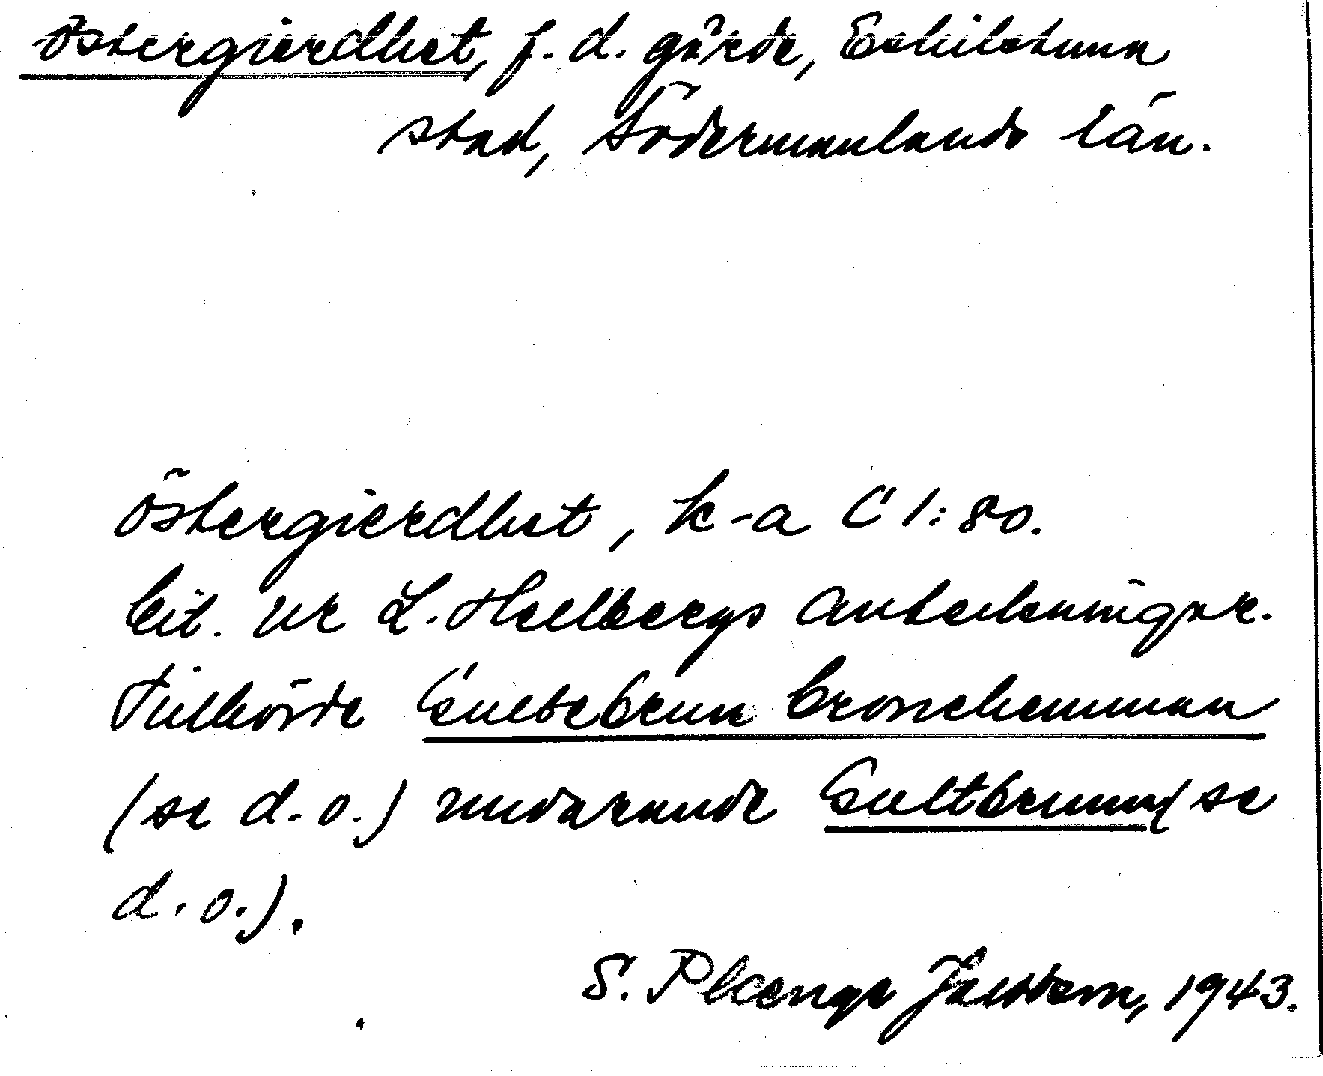 Östergierdhet, f. d. gärde, Eskilstuna
stad, Södermanlands län.
Östergierdhet, k-a C 1:80.
Cit. ur L. Hellbergs anteckningar.
Tillhörde Gultebrun Cronehemman
(se d.o.) nuvarande Gultbrunn (se
d.o.).
S. 1943.